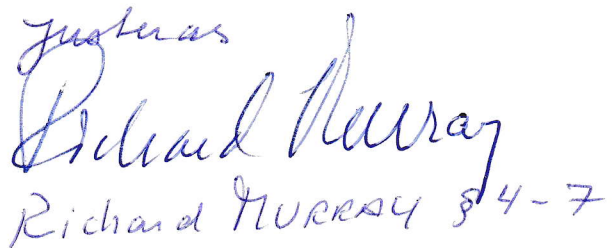 Justeras
Richard Murray
Richard MURRAY § 4-7